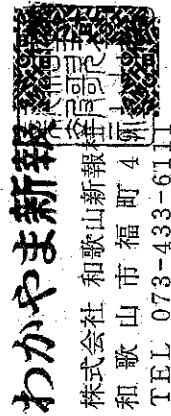 わかやま新報
株式会社 和歌山新報社
和歌山市福町4
TEL 073-433-6111